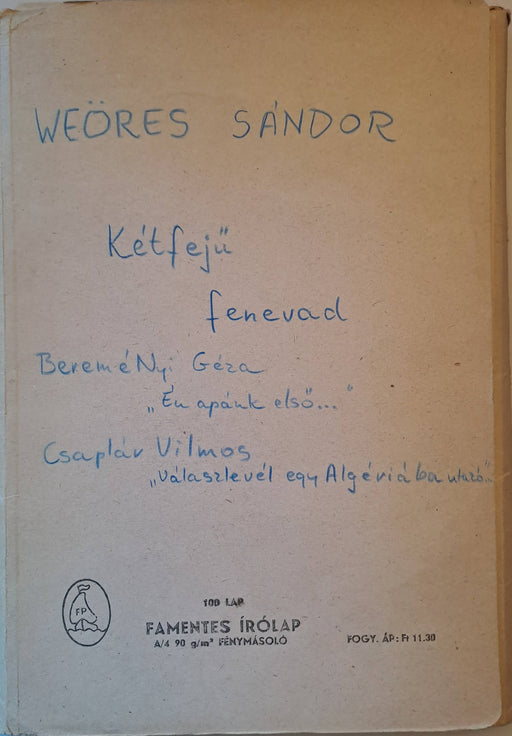 WEÖRES SÁNDOR
Kétfejű
fenevad
BereméNyi Géza
„Én apánk első..."
Csaplár Vilmos
„Válaszlevél egy Algériába utazó..."
FP
100 LAP
FAMENTES ÍRÓLAP
A/4 90 g/m² FÉNYMÁSOLÓ
FOGY. ÁP: Ft 11.30